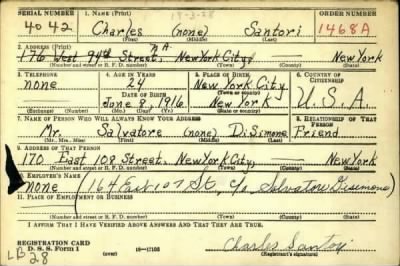 SERIAL NUMBER 1. NAME (Print) ORDER NUMBER
4042 Charles (none) Santori 1468A
(First) (Middle) (Last)
2. ADDRESS (Print)
176 West 94th Street, New York City, New York
(Number and street or R. F. D. number) (Town) (County) (State)
3. TELEPHONE 4. AGE IN YEARS 5. PLACE OF BIRTH 6. COUNTRY OF CITIZENSHIP
none 24 New York City U.S.A.
DATE OF BIRTH (Town or county)
June 8, 1916 New York
(Exchange) (Number) (Mo.) (Day) (Yr.) (State or country)
7. NAME OF PERSON WHO WILL ALWAYS KNOW YOUR ADDRESS 8. RELATIONSHIP OF THAT PERSON
Mr. Salvatore (none) DiSimone Friend
(Mr., Mrs., Miss) (First) (Middle) (Last)
9. ADDRESS OF THAT PERSON
170 East 109 Street, New York City, New York
(Number and street or R. F. D. number) (Town) (County) (State)
10. EMPLOYER'S NAME
none (164 East 107 St, c/o Salvatore Disimone)
11. PLACE OF EMPLOYMENT OR BUSINESS
(Number and street or R. F. D. number) (Town) (County) (State)
I AFFIRM THAT I HAVE VERIFIED ABOVE ANSWERS AND THAT THEY ARE TRUE.
REGISTRATION CARD
D. S. S. Form 1 16—17105 Charles Santori
(Registrant's signature)
LB 28